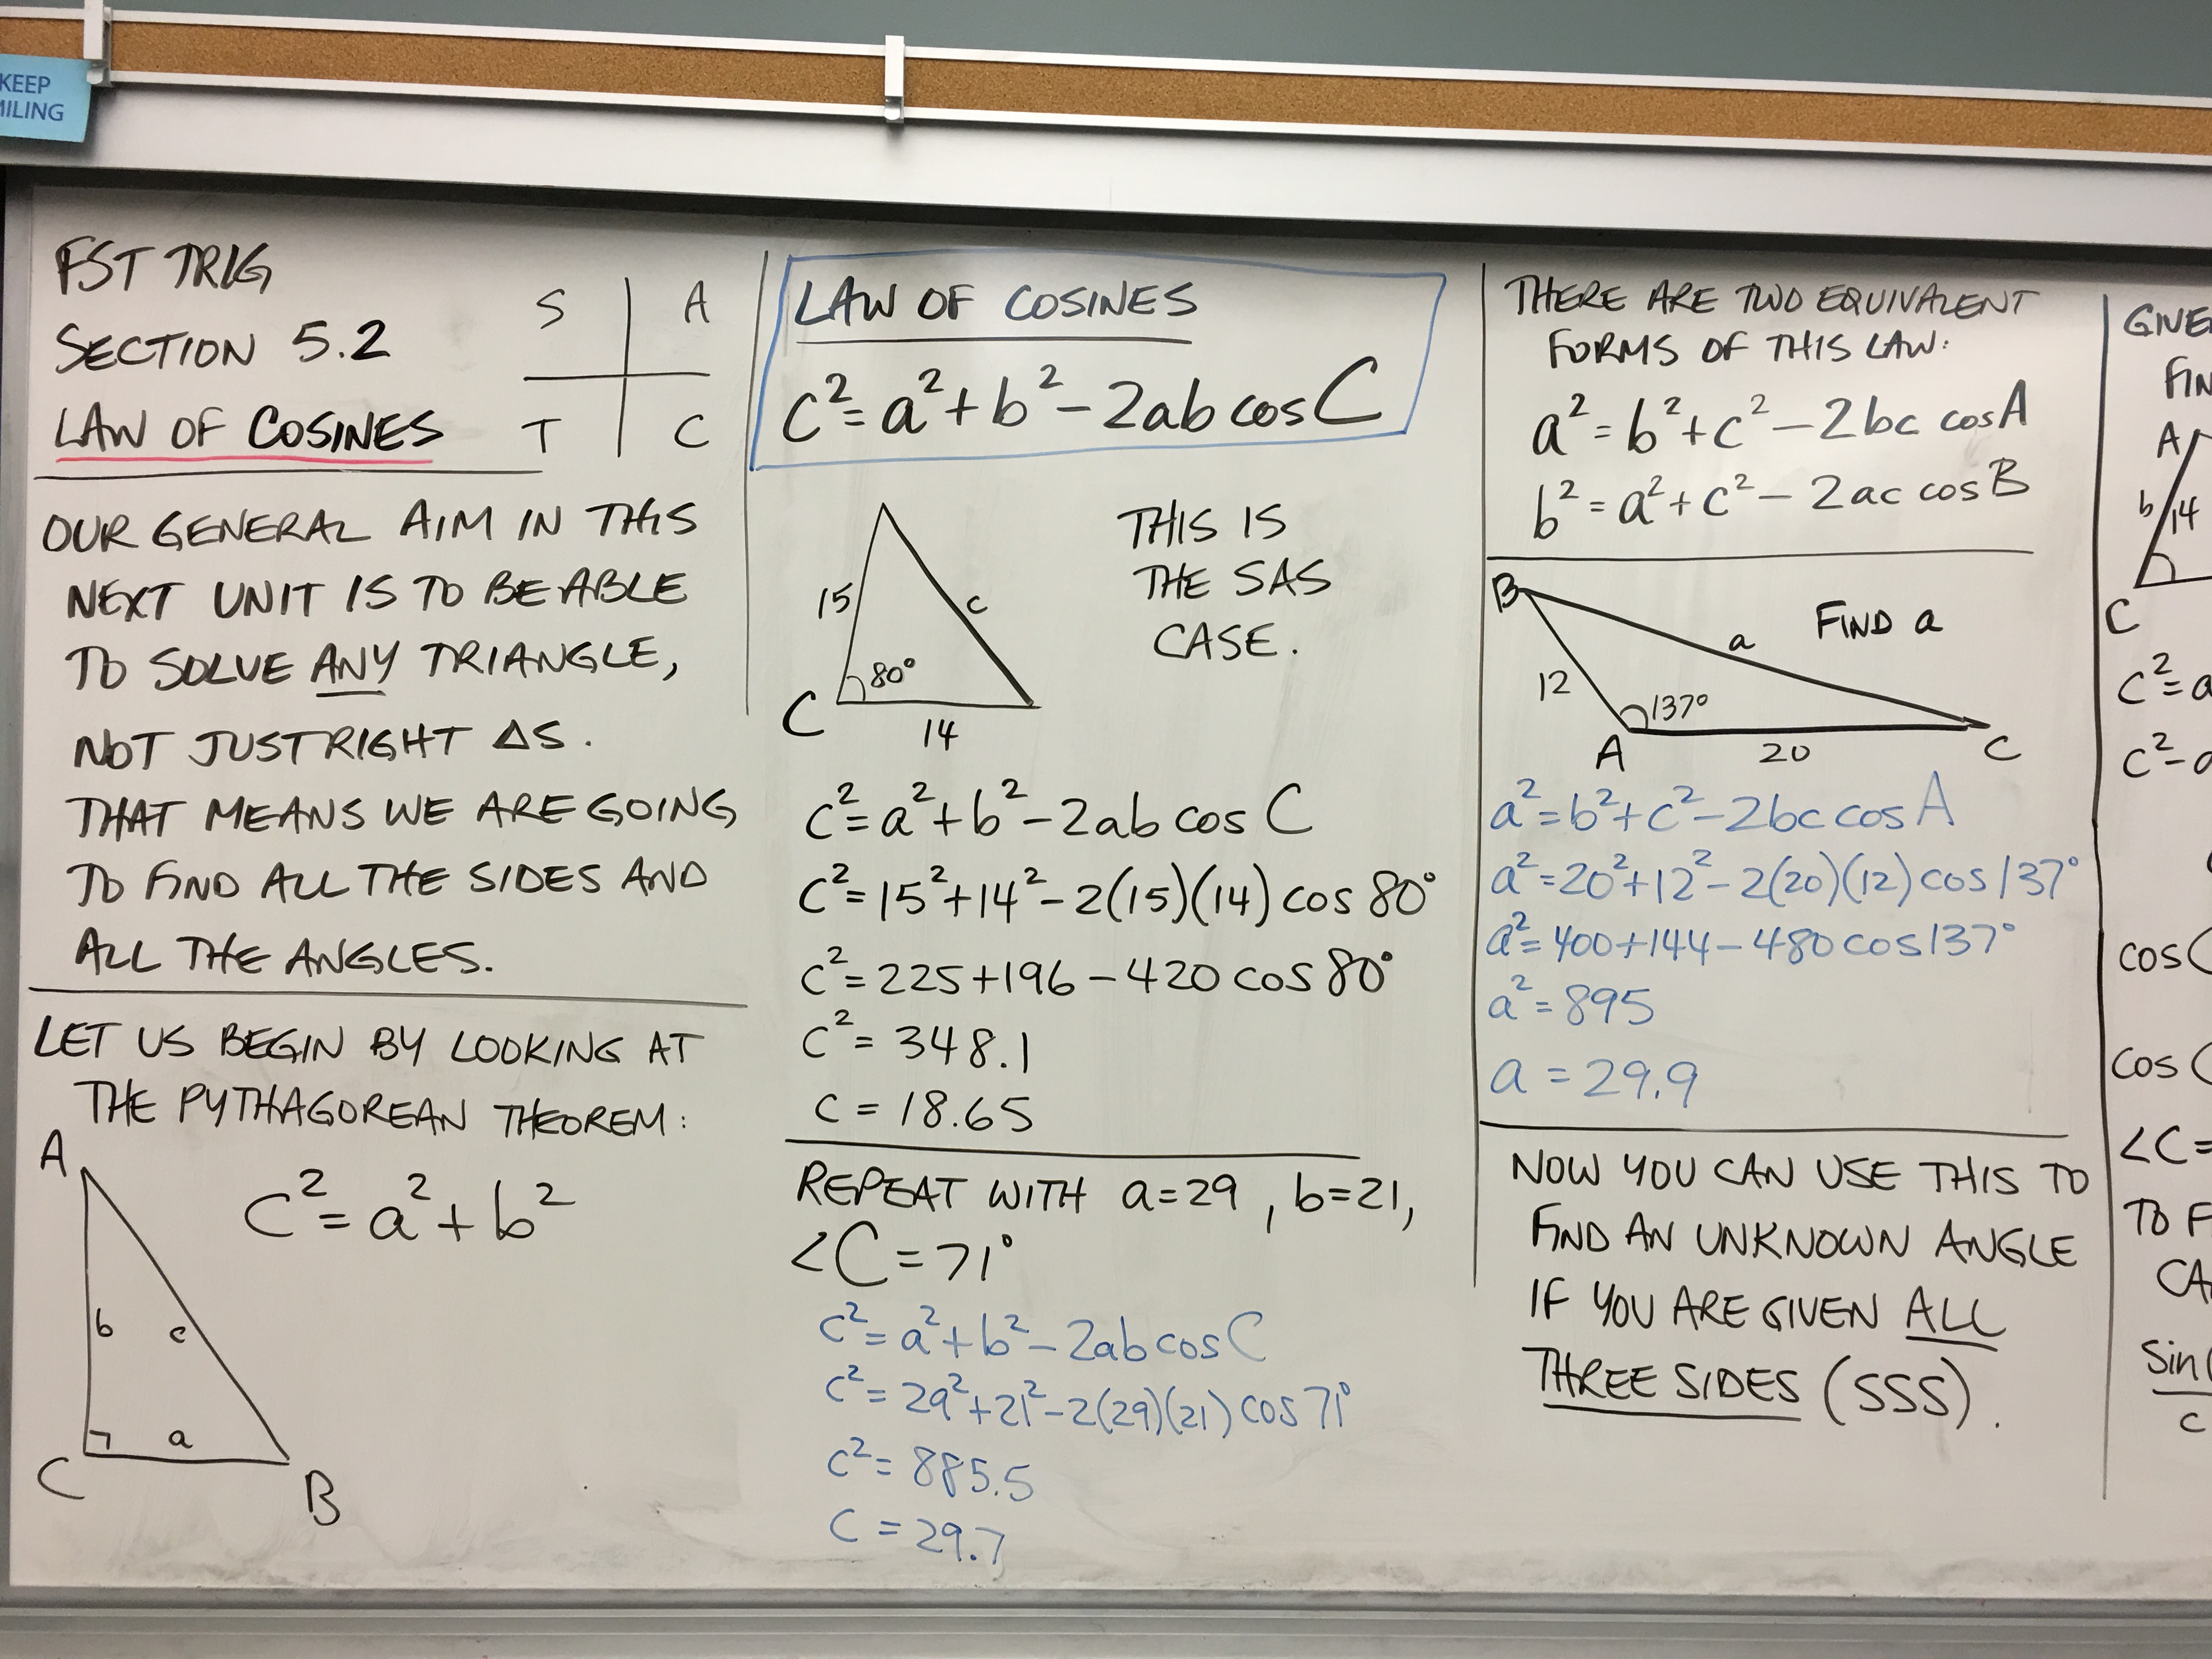 KEEP
MILING
FST TRIG
SECTION 5.2
LAW OF COSINES
S A
T C
OUR GENERAL AIM IN THIS
NEXT UNIT IS TO BE ABLE
TO SOLVE ANY TRIANGLE,
NOT JUST RIGHT ΔS.
THAT MEANS WE ARE GOING
TO FIND ALL THE SIDES AND
ALL THE ANGLES.
LET US BEGIN BY LOOKING AT
THE PYTHAGOREAN THEOREM:
A
c² = a² + b²
b c
a
C B
LAW OF COSINES
c² = a² + b² - 2ab cos C
THIS IS
THE SAS
CASE.
15 c
80°
C
14
c² = a² + b² - 2ab cos C
c² = 15² + 14² - 2(15)(14) cos 80°
c² = 225 + 196 - 420 cos 80°
c² = 348.1
c = 18.65
REPEAT WITH a=29, b=21,
<C = 71°
c² = a² + b² - 2ab cos C
c² = 29² + 21² - 2(29)(21) cos 71°
c² = 885.5
c = 29.7
THERE ARE TWO EQUIVALENT
FORMS OF THIS LAW:
a² = b² + c² - 2bc cos A
b² = a² + c² - 2ac cos B
B
a FIND a
12 137°
A 20 C
a² = b² + c² - 2bc cos A
a² = 20² + 12² - 2(20)(12) cos 137°
a² = 400 + 144 - 480 cos 137°
a² = 895
a = 29.9
NOW YOU CAN USE THIS TO
FIND AN UNKNOWN ANGLE
IF YOU ARE GIVEN ALL
THREE SIDES (SSS).
GIVE
FIN
A
b 14
C
c² = a
c² - a
cos C
cos C
<C =
TO F
CA
sin
c